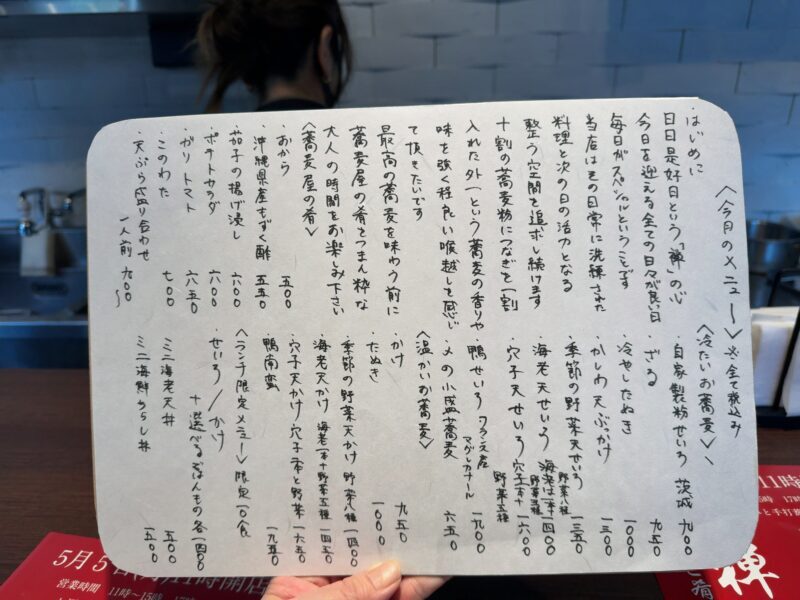 〈今月のメニュー〉※全て税込み
・はじめに
日日是好日という「禅」の心
今日を迎える全ての日々が良い日
毎日がスペシャルということです
当店はその日常に洗練された
料理と次の日の活力となる
整う空間を追求し続けます
十割の蕎麦粉につなぎを一割
入れた外一という蕎麦の香りや
味を強く程良い喉越しを感じ
て頂きたいです
最高の蕎麦を味わう前に
蕎麦屋の肴をつまん粋な
大人の時間をお楽しみ下さい
〈蕎麦屋の肴〉
・おから 五〇〇
・沖縄県産もずく酢 五五〇
茄子の揚げ浸し 六〇〇
ポテトサラダ 六〇〇
・ガリトマト 六五〇
・このわた 七〇〇
・天ぷら盛り合わせ
一人前 九〇〇〜
〈冷たいお蕎麦〉
・自家製粉せいろ 茨城 九〇〇
・ざる 九五〇
・冷やしたぬき 一〇〇〇
・かしわ天ぶかけ 一三〇〇
・季節の野菜天せいろ 野菜八種 一三五〇
海老天せいろ 海老一本+野菜五種 一四〇〇
・穴子天せいろ 穴子一本+野菜五種 一六〇〇
・鴨せいろ フランス産マグレカナール 一九〇〇
・〆の小盛蕎麦 六五〇
〈温かいお蕎麦〉
・かけ 九五〇
・たぬき 一〇〇〇
・季節の野菜天かけ 野菜八種 一四〇〇
・海老天かけ 海老一本+野菜五種 一四五〇
・穴子天かけ 穴子一本と野菜 一六五〇
・鴨南蛮 一九五〇
〈ランチ限定メニュー〉限定一〇食
・せいろ/かけ
+選べるごはんもの各 一四〇〇
ミニ海老天丼 五〇〇
ミニ海鮮ちらし丼 一五〇〇
5月5日
11時開店
営業時間 11時〜15時
11時
17時
と手打
ご肴
禅